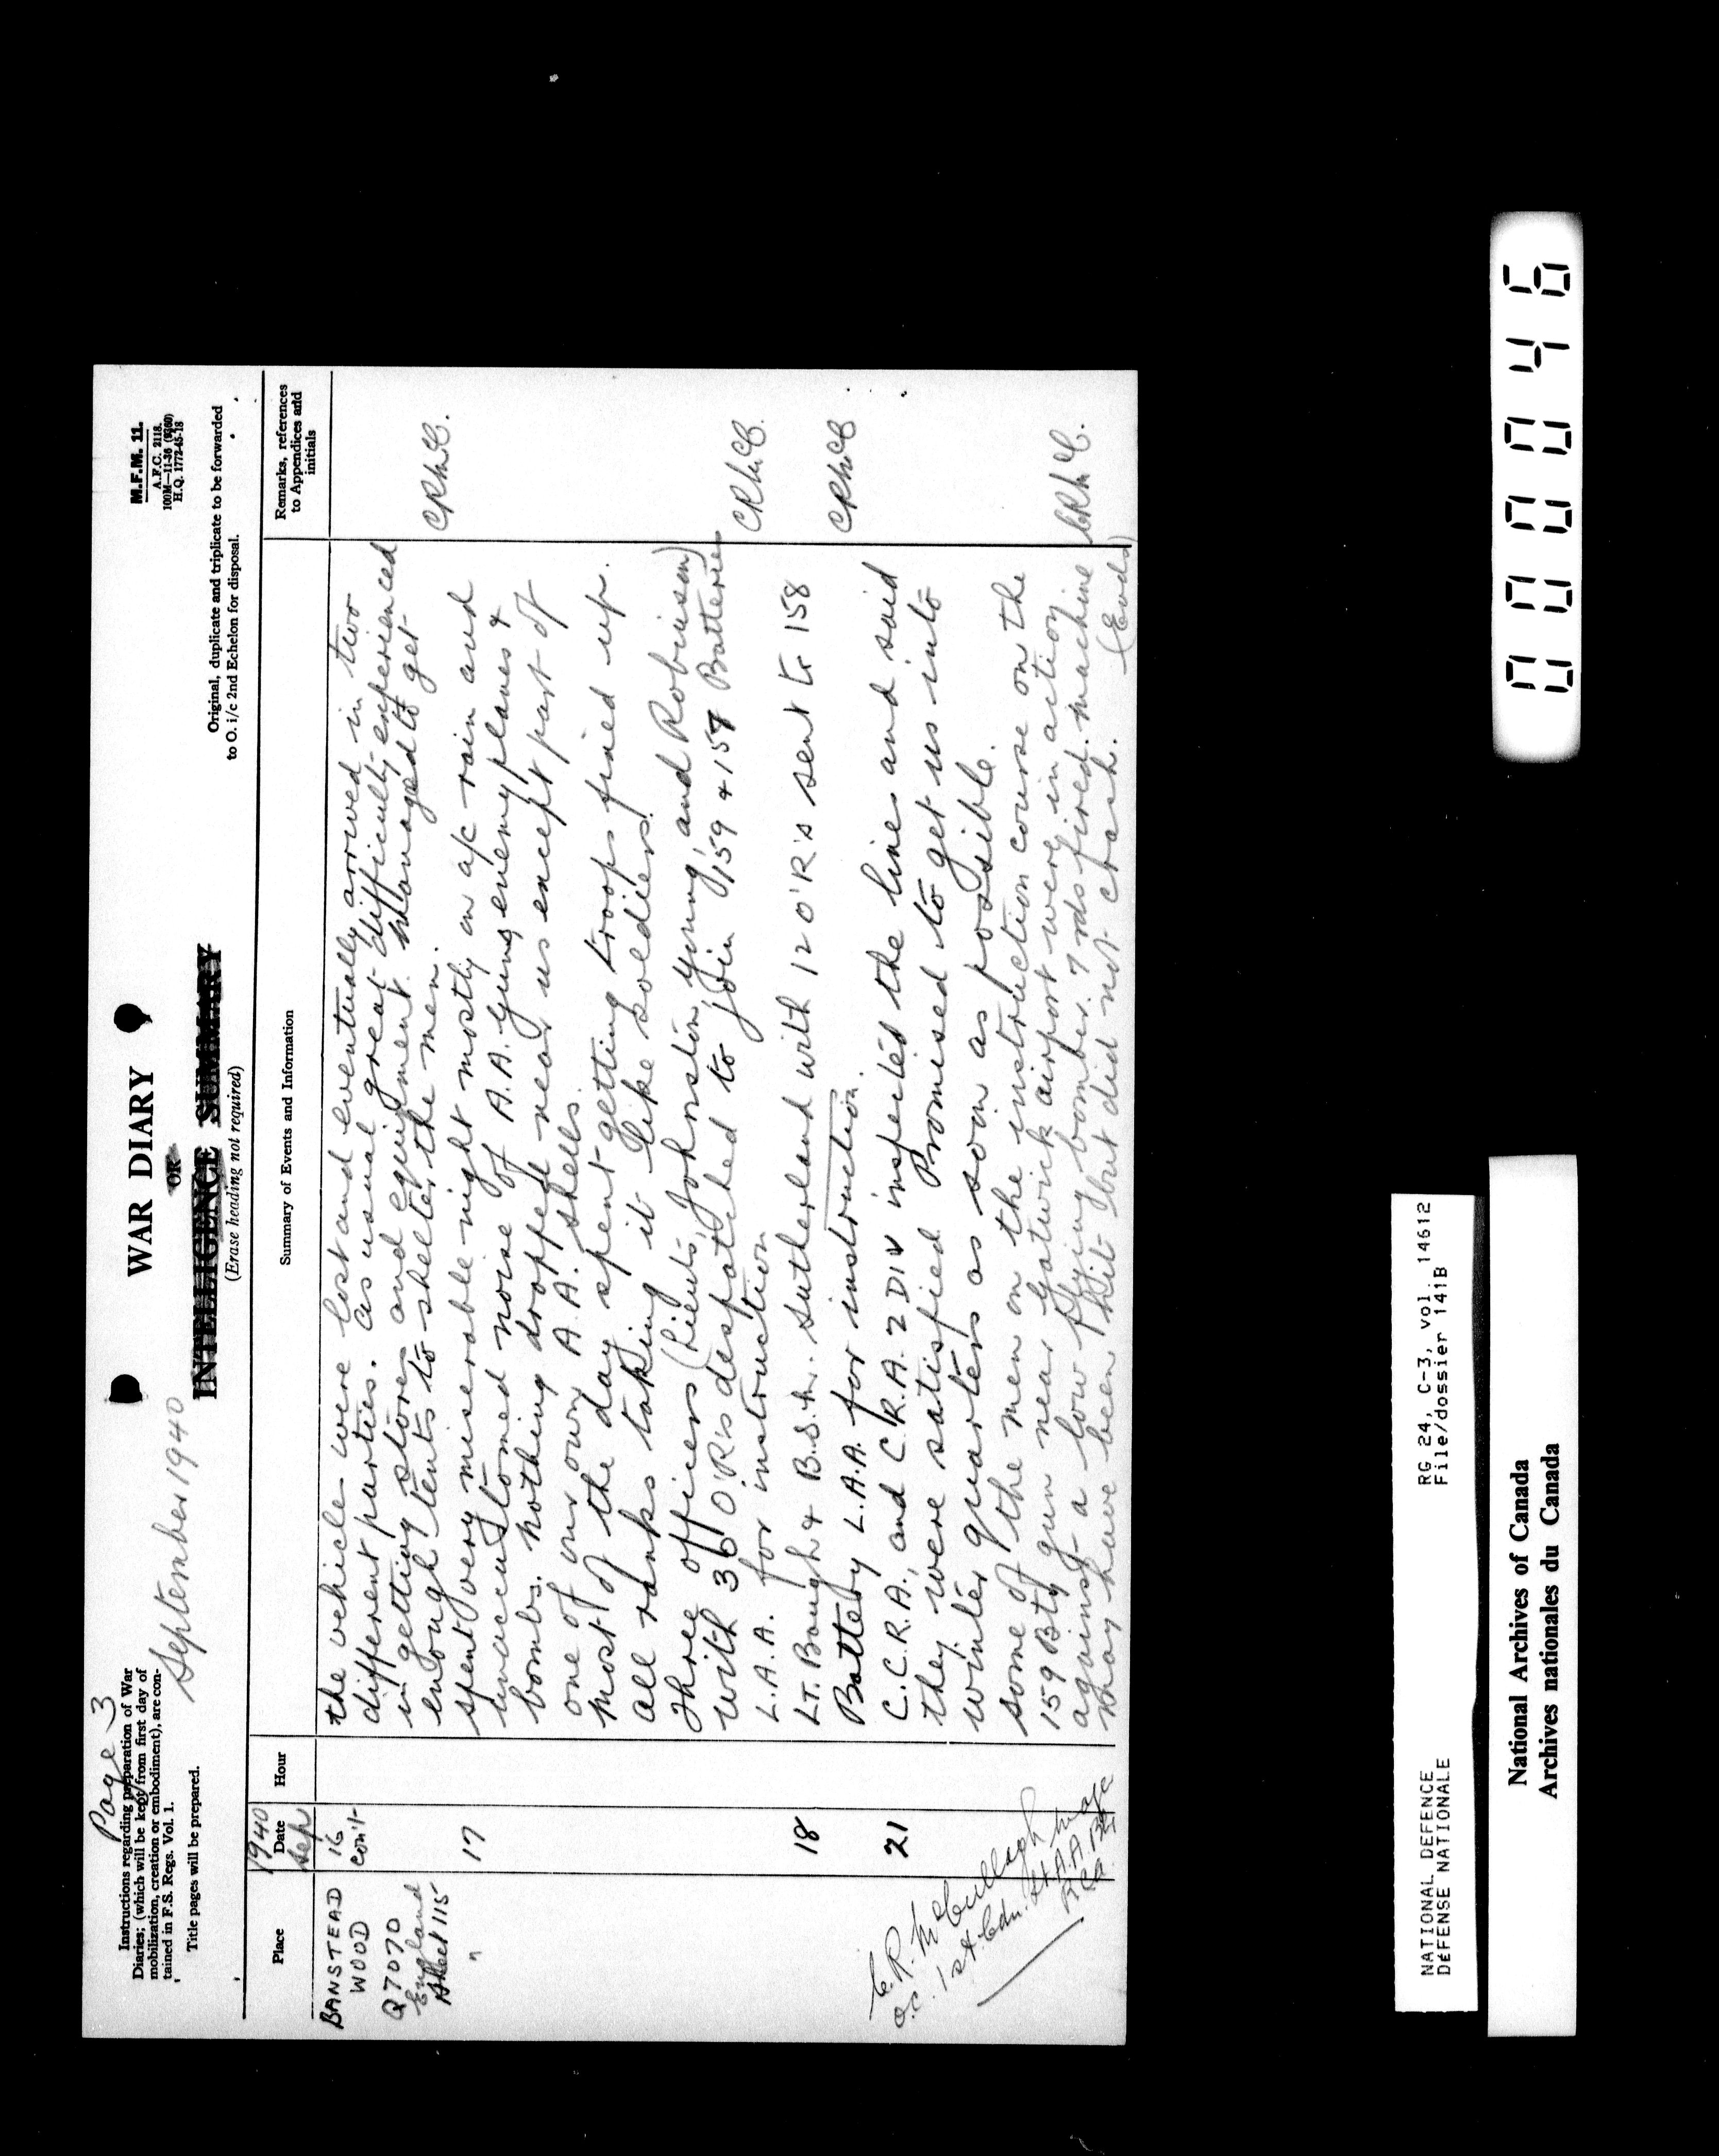 Page 3
Instructions regarding preparation of War
Diaries; (which will be kept from first day of
mobilization, creation or embodiment), are con-
tained in F.S. Regs. Vol. 1.
Title pages will be prepared.
September 1940
WAR DIARY
OR
INTELLIGENCE SUMMARY
(Erase heading not required)
M.F.M. 11.
A.F.C. 2118.
100M—11-36
H.Q. 1772-45-18
Original, duplicate and triplicate to be forwarded
to O. i/c 2nd Echelon for disposal.
Place
1940
Date
Sep
Hour
Summary of Events and Information
Remarks, references
to Appendices and
initials
BANSTEAD
WOOD
Q7070
England
Sheet 115
16
con't
the vehicles were lost and eventually arrived in two
different parties. As usual great difficulty experienced
in getting stores and equipment. Managed to get
enough tents to shelter the men.
"
17
spent very miserable night mostly on a/c rain and
unaccustomed noise of A.A. guns, enemy planes &
bombs. Nothing dropped near us except part of
one of our own A.A. shells.
Most of the day spent getting troops fixed up.
All ranks taking it like soldiers.
Three officers (Lieuts, Johnston, Young, and Robinson)
with 36 O'R's despatched to join 159 & 157 Batteries
L.A.A. for instruction
18
LT. Baugh & B.S.M. Sutherland with 12 O'R's sent to 158
Battery L.A.A. for instruction.
21
C.C.R.A. and C.R.A. 2 DIV inspected the lines and said
they were satisfied Promised to get us into
winter quarters as soon as possible.
Some of the men on the instruction course on the
159 Bty gun near Gatwick airport were in action
against a low flying bomber. 7 rds fired. Machine
may have been hit but did not crash.
C.R. McCullagh Major
O.C. 1st Cdn. H.A.A. Bty
RCA
NATIONAL DEFENCE
DÉFENSE NATIONALE
RG 24, C-3, vol. 14612
File/dossier 141B
National Archives of Canada
Archives nationales du Canada
000046